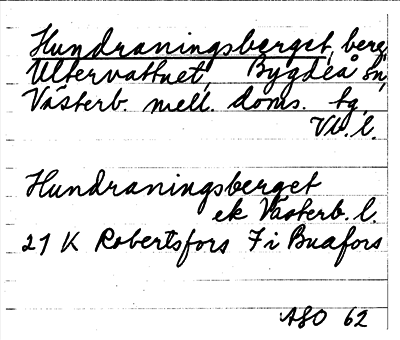 Hundraningsberget, berg,
Ultervattnet, Bygdeå sn,
Västerb. mell. doms. tg,
Vb. l.
Hundraningsberget
ek Västerb. l.
21 K Robertsfors 7 i Buafors
ASO 62